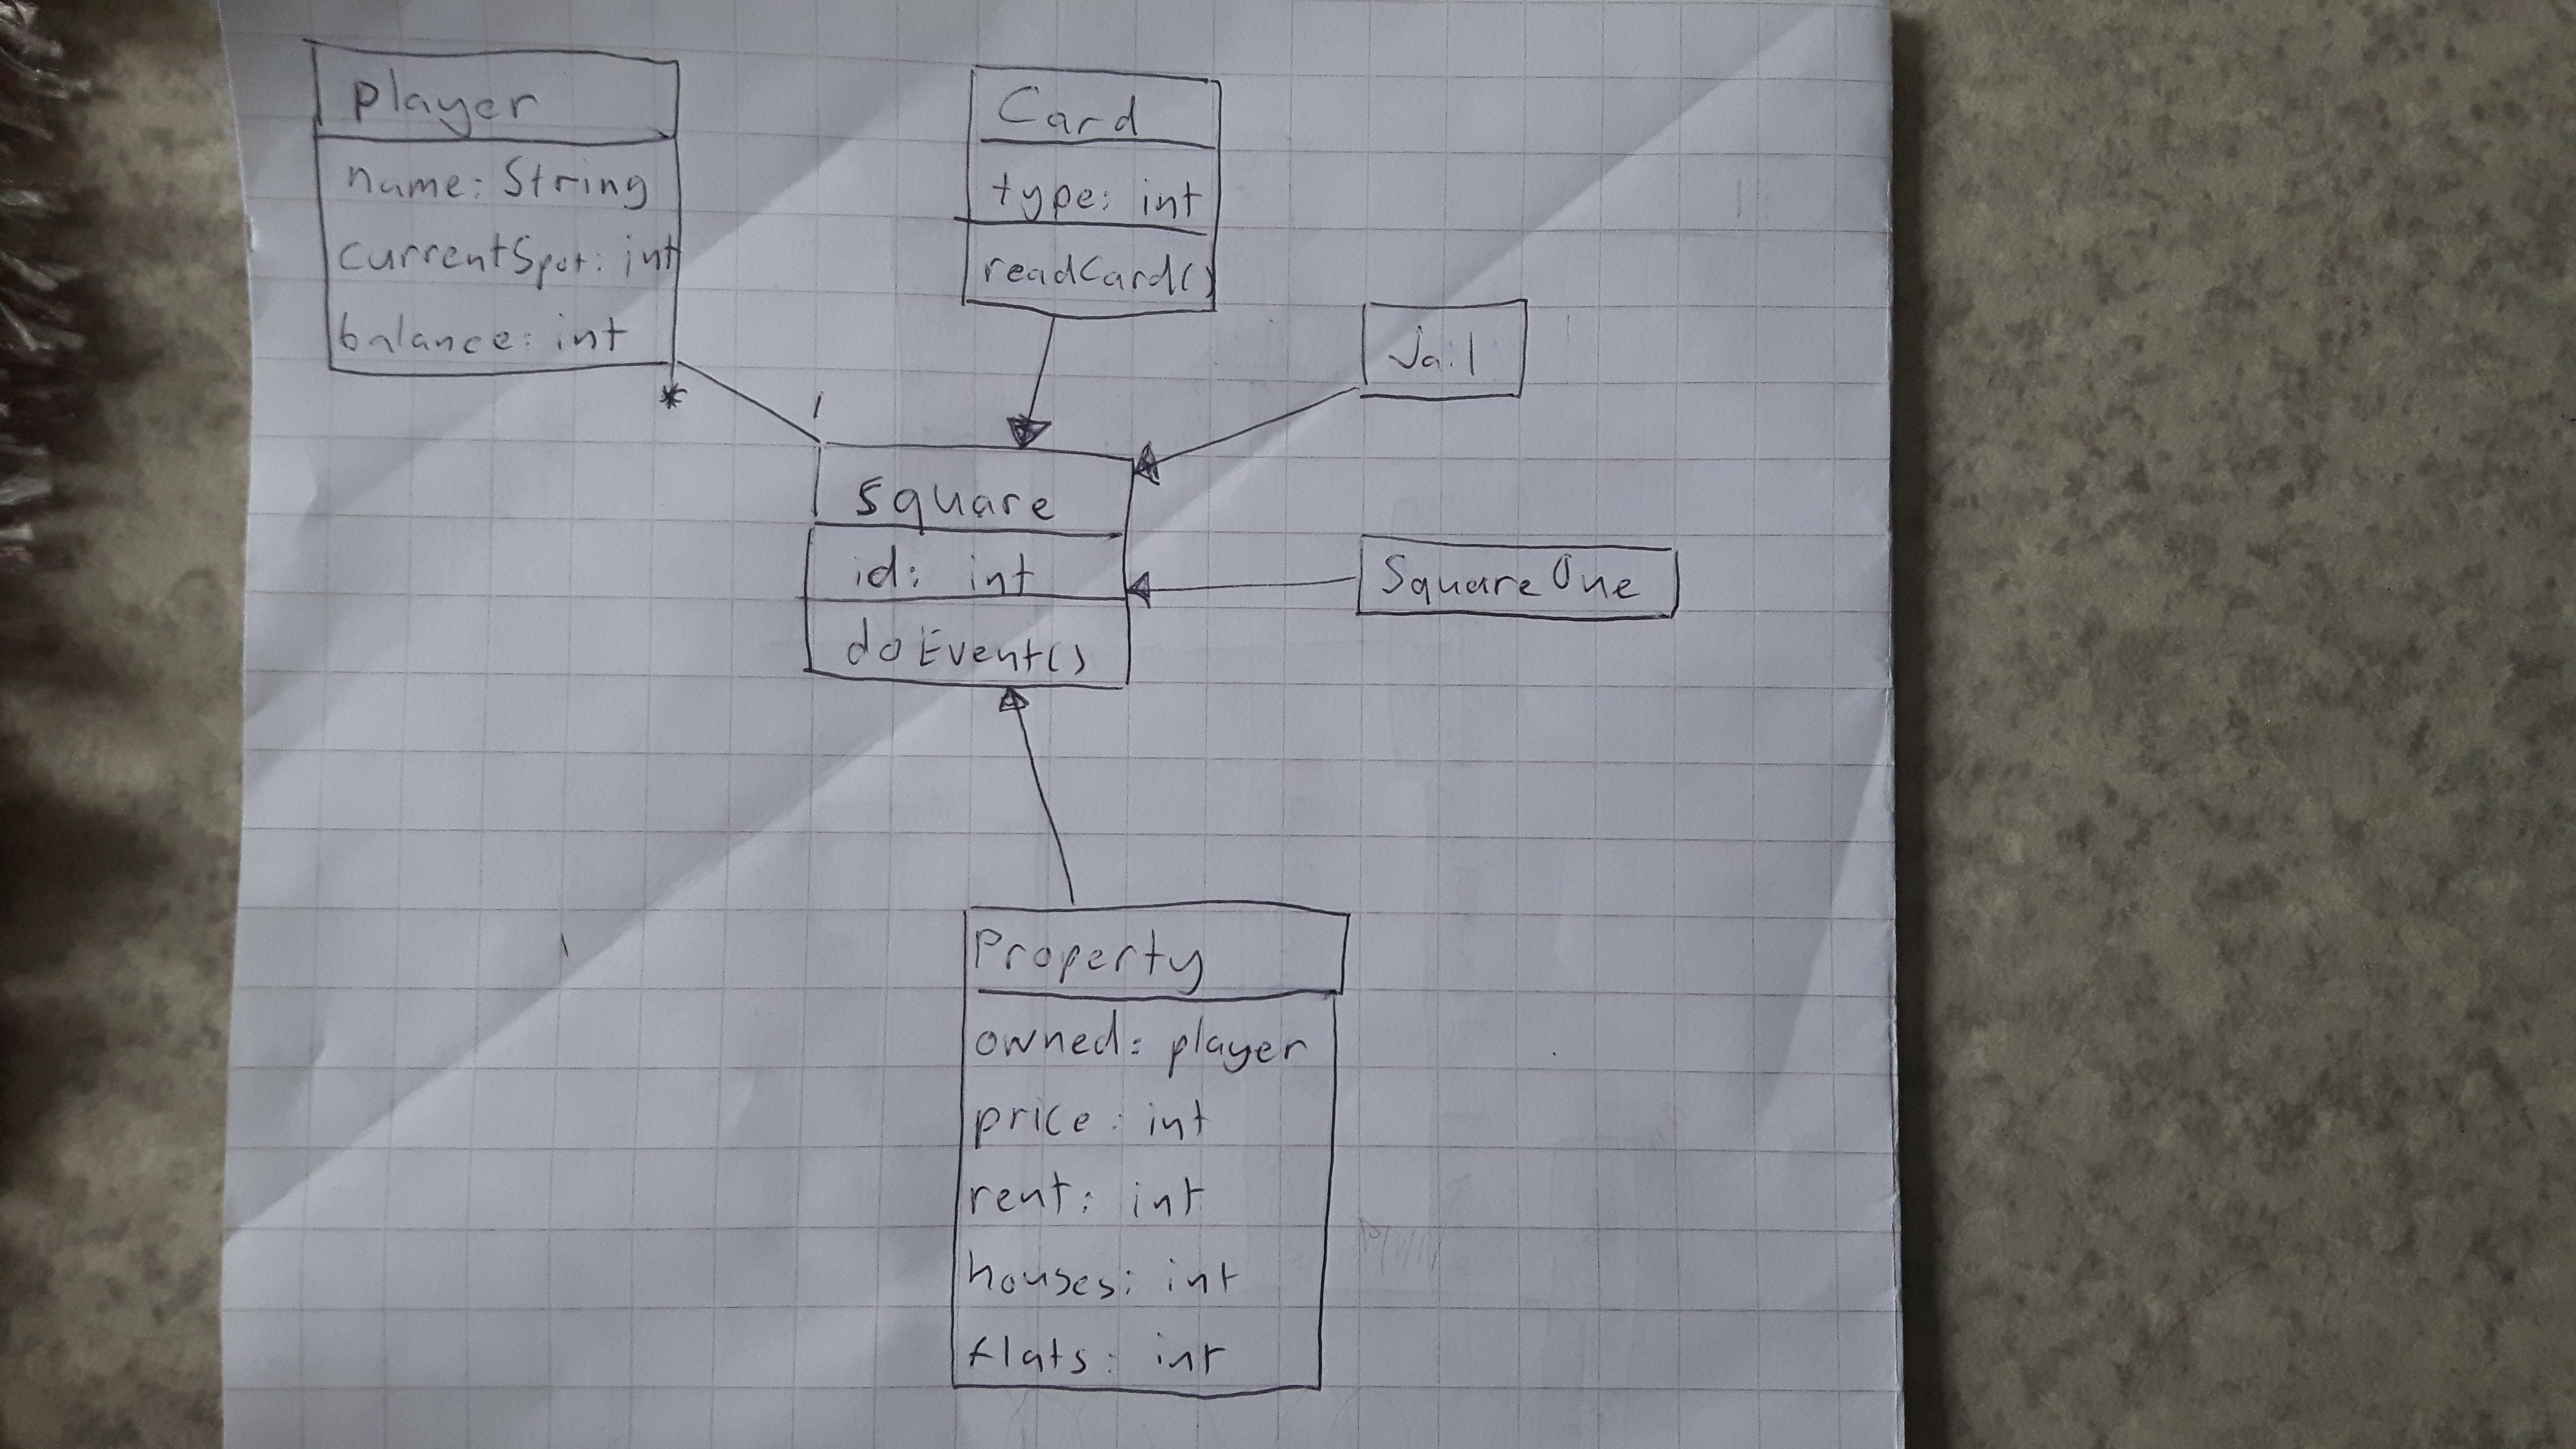 player
name: String
currentSpot: int
balance: int
*
1
Card
type: int
readCard()
Jail
square
id: int
doEvent()
SquareOne
Property
owned: player
price: int
rent: int
houses: int
flats: int